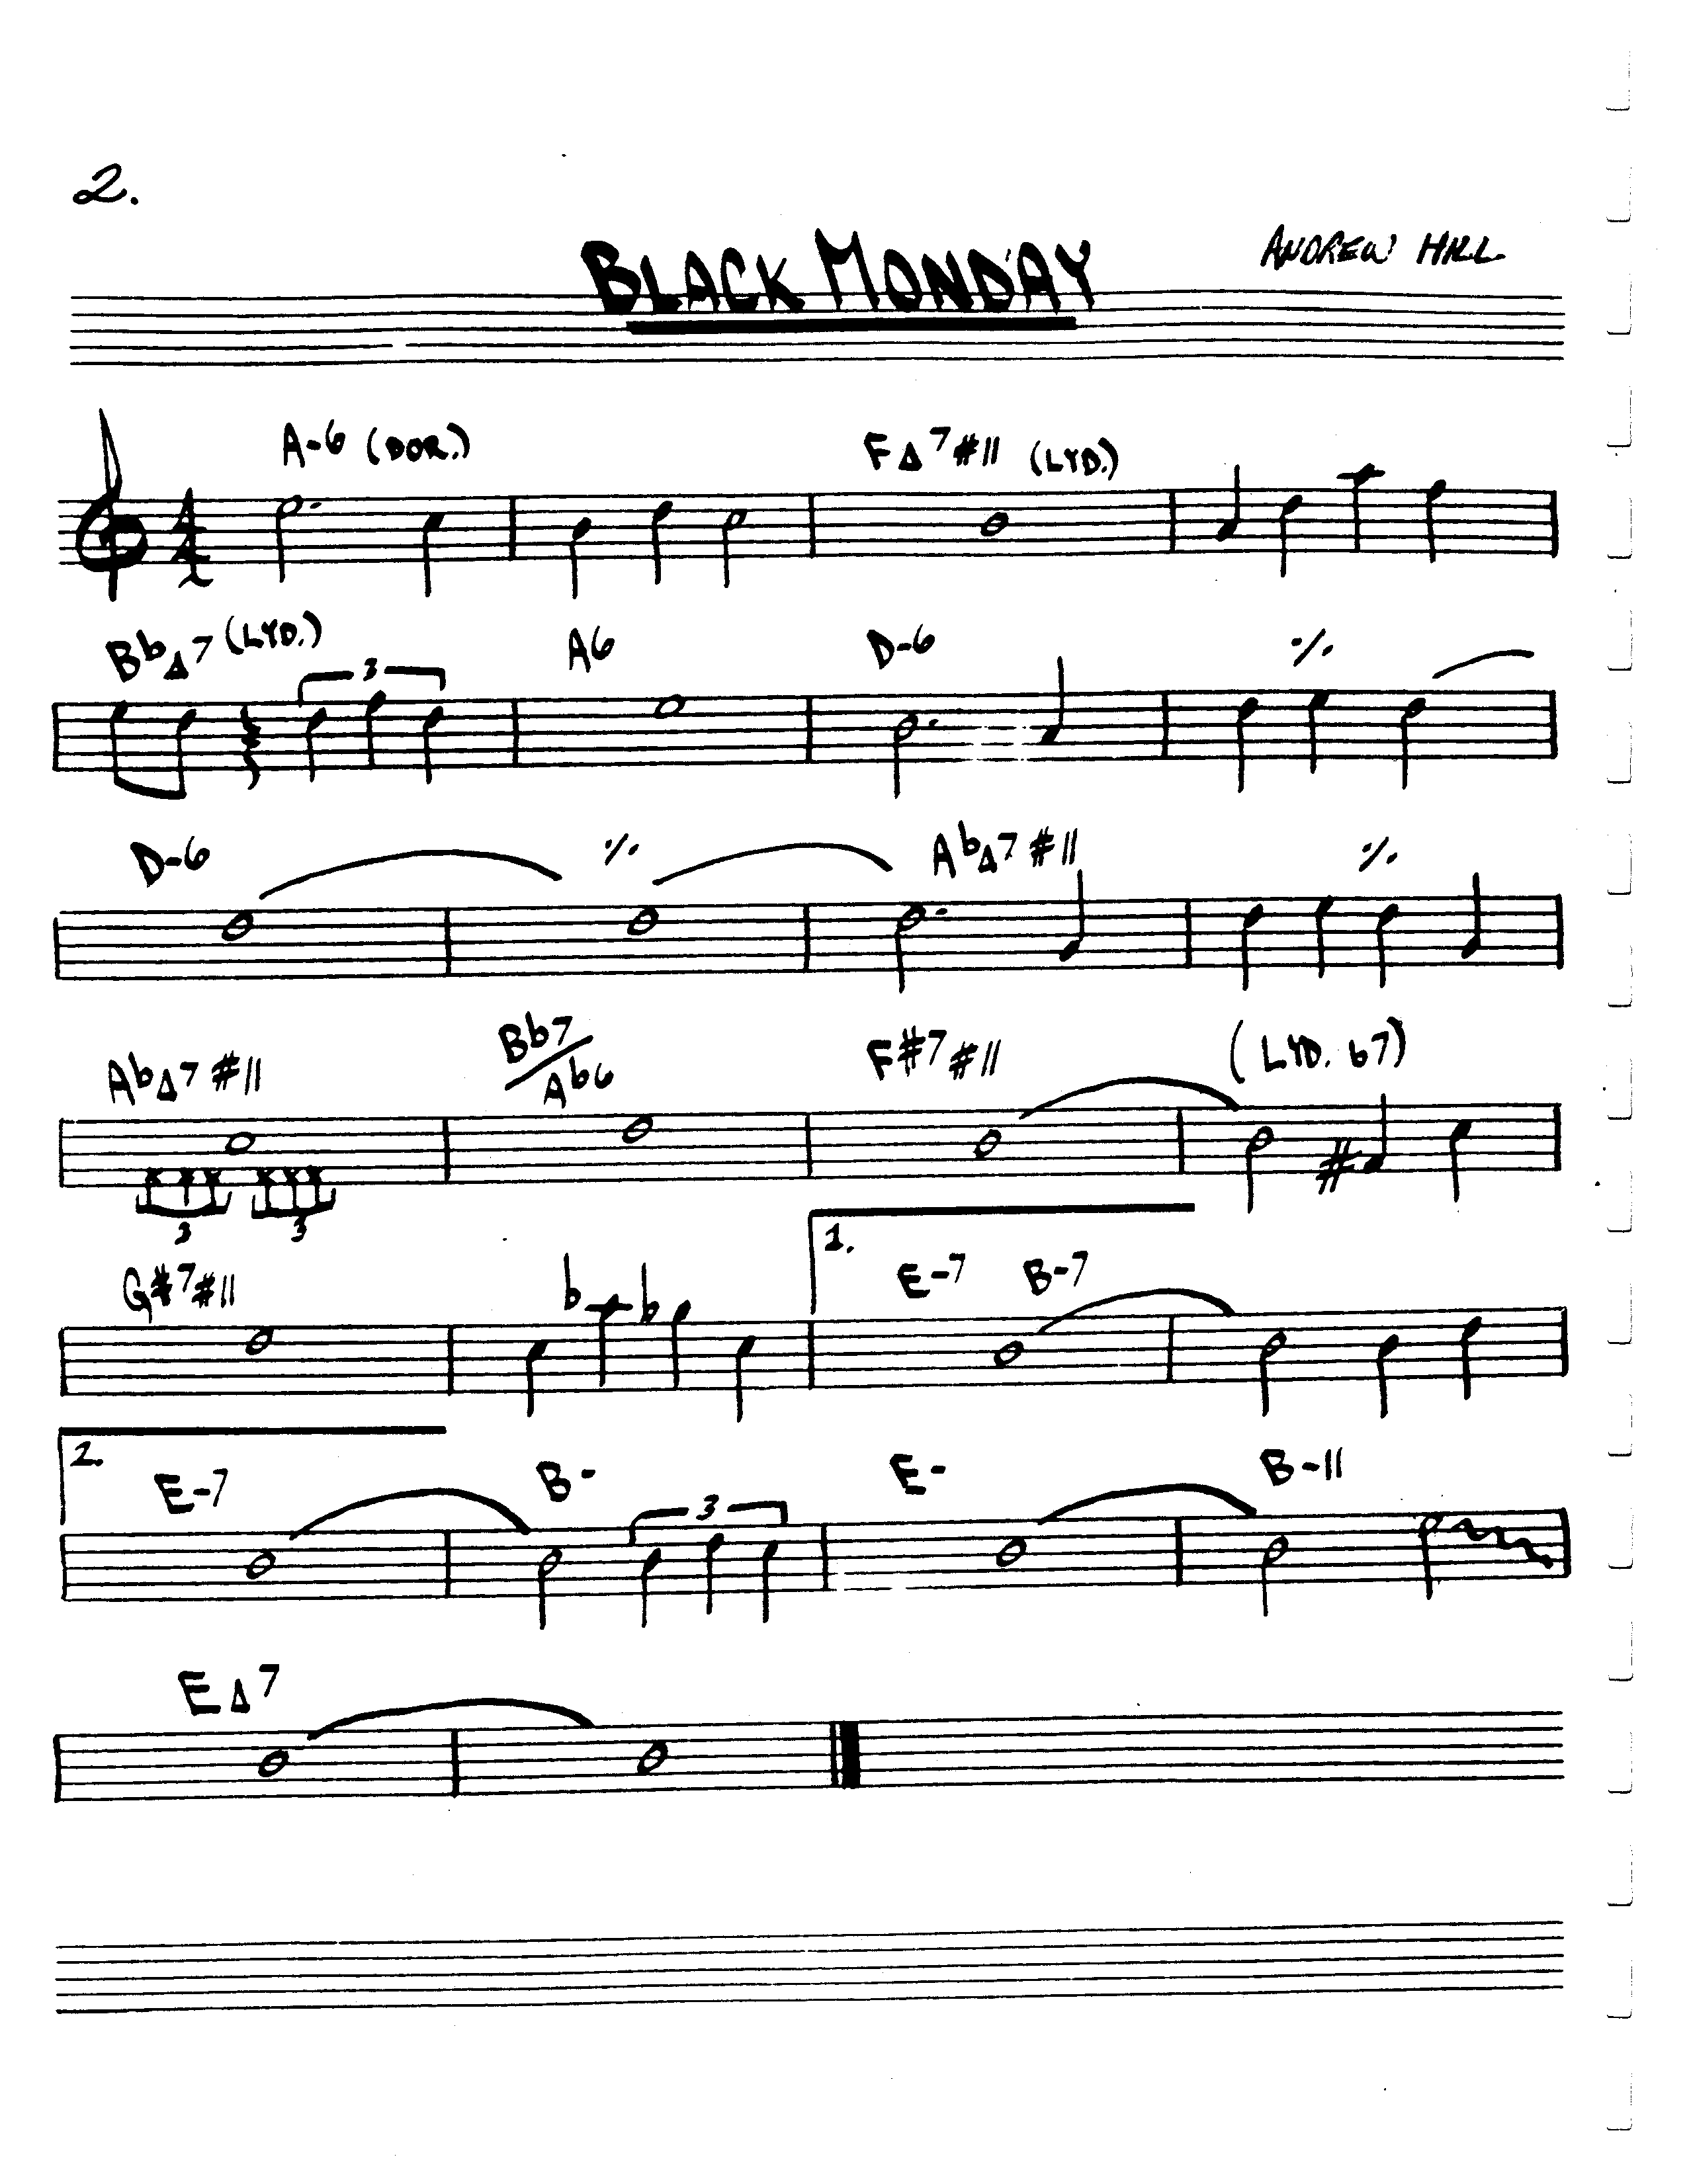 2.
BLACK MONDAY
ANDREW HILL
A-6 (DOR.) FΔ7#11 (LYD.)
4 4
BbΔ7 (LYD.) A6 D-6 ٪
3
D-6 ٪ AbΔ7#11 ٪
AbΔ7#11 Bb7/Ab6 F#7#11 (LYD. b7)
3 3
1.
G#7#11 E-7 B-7
2.
E-7 B- E- B-11
3
EΔ7